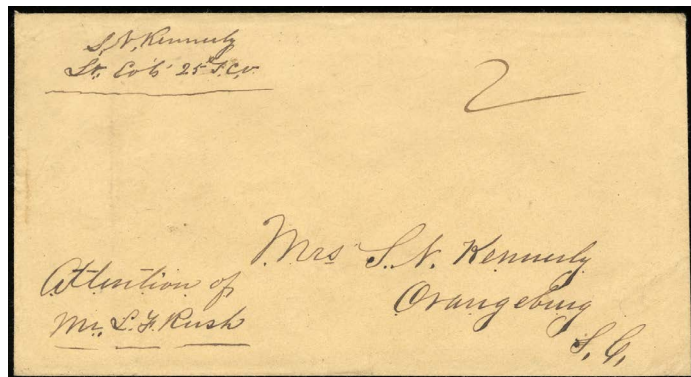 S. N. Kennerly
Lt. Co G 25th S.C.V.
2
Mrs S. N. Kennerly
Orangeburg
S. C.
Attention of
Mr. L. F. Rush